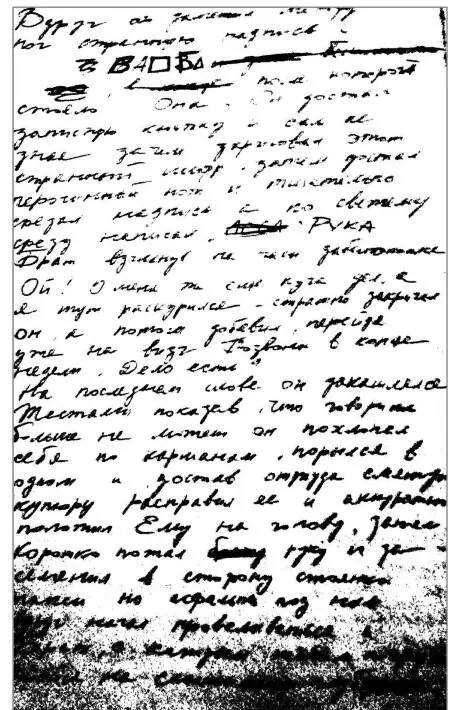 Вдруг он заметил между
ног странную надпись
В4□
в под которой
стояло Она. Он достал
записную книжку и сам не
зная зачем зарисовал этот
странный шифр, затем достал
перочинный нож и тщательно
срезал надпись а по свежему
срезу написал, РУКА
взглянув на часы
Ой! У меня же еще куча дел, а
я тут раскурился - страшно закричал
он, а потом добавил, перейдя
уже на визг Позвони в конце
недели, Дело есть"
На последнем слове он закашлялся
Жестами показав, что говорить
больше не может он похлопал
себя по карманам, порылся в
одном и достав оттуда смятую
купюру расправил ее и аккуратно
положил Ему на голову, затем
коротко пожал руку и за-
семенил в сторону стоянки
такси но асфальт под ним
вдруг начал проваливаться и
на